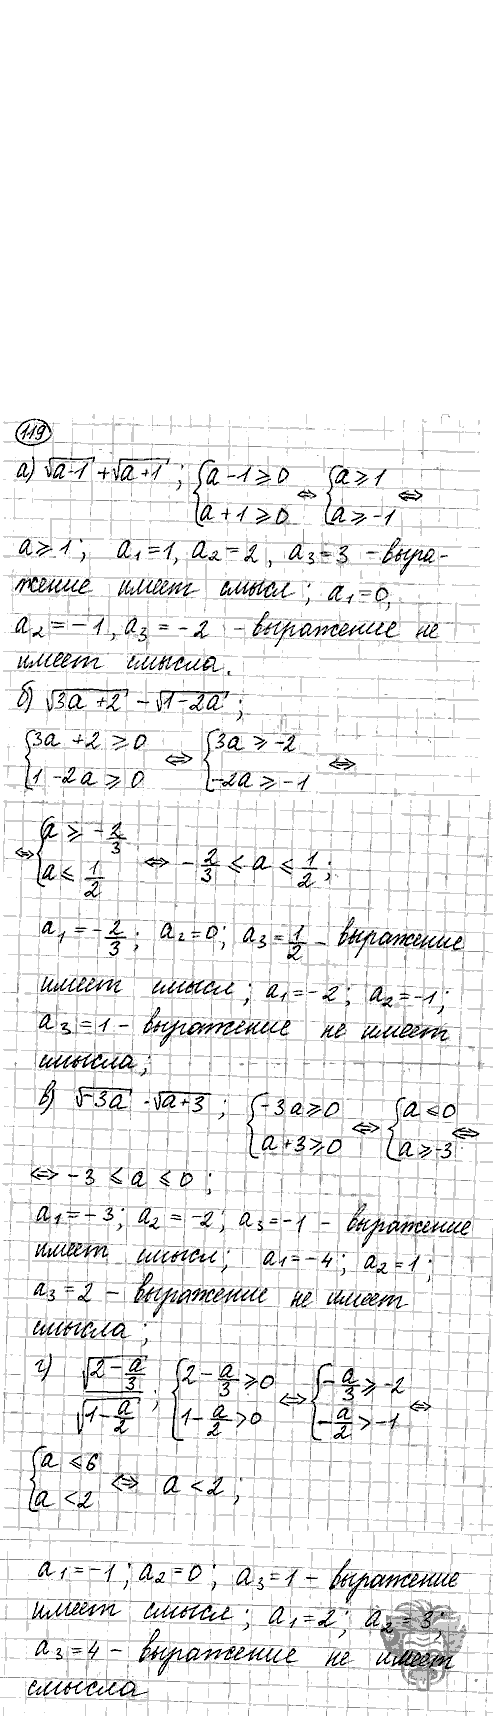 119
а) √(a-1) + √(a+1) ; { a-1 ⩾ 0 ⇔ { a ⩾ 1 ⇔
a+1 ⩾ 0 a ⩾ -1
a ⩾ 1 ; a₁=1, a₂=2, a₃=3 - выра-
жение имеет смысл ; a₁=0,
a₂=-1, a₃=-2 - выражение не
имеет смысла.
б) √(3a+2) - √(1-2a) ;
{ 3a+2 ⩾ 0 ⇔ { 3a ⩾ -2 ⇔
1-2a ⩾ 0 -2a ⩾ -1
⇔ { a ⩾ -2/3 ⇔ -2/3 ⩽ a ⩽ 1/2 ;
a ⩽ 1/2
a₁=-2/3 ; a₂=0 ; a₃=1/2 - выражение
имеет смысл ; a₁=-2 ; a₂=-1 ;
a₃=1 - выражение не имеет
смысла ;
в) √(-3a) · √(a+3) ; { -3a ⩾ 0 ⇔ { a ⩽ 0 ⇔
a+3 ⩾ 0 a ⩾ -3
⇔ -3 ⩽ a ⩽ 0 ;
a₁=-3 ; a₂=-2 ; a₃=-1 - выражение
имеет смысл ; a₁=-4 ; a₂=1 ;
a₃=2 - выражение не имеет
смысла ;
г) √(2-a/3) / √(1-a/2) ; { 2-a/3 ⩾ 0 ⇔ { -a/3 ⩾ -2 ⇔
1-a/2 > 0 -a/2 > -1
{ a ⩽ 6 ⇔ a < 2 ;
a < 2
a₁=-1 ; a₂=0 ; a₃=1 - выражение
имеет смысл ; a₁=2 ; a₂=3 ;
a₃=4 - выражение не имеет
смысла